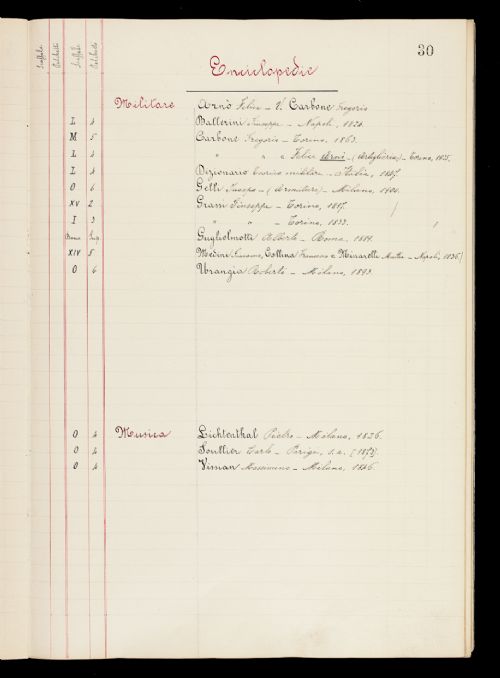 30
Scaffale Palchetto Scaffale Palchetto
Enciclopedie
Militare Arnò Felice – V. Carbone Gregorio
L 4 Ballerini Giuseppe – Napoli, 1824.
M 5 Carbone Gregorio – Torino, 1863.
L 4 " " e Felice Arnò – (Artiglieria) – Torino, 1835.
L 4 Dizionario storico militare – Italia, 1847.
O 6 Gelli Jacopo – (Armature) – Milano, 1900.
XV 2 Grassi Giuseppe – Torino, 1817.
I 3 " " – Torino, 1833.
Guglielmotti Alberto – Roma, 1889.
XIV 5 Medini Giacomo, Collina Francesco e Minarelli – Napoli, 1836
O 6 Ubrangia Roberto – Milano, 1893.
O 4 Musica Lichtenthal Pietro – Milano, 1836.
O 4 Soullier Carlo – Parigi, s. a. [1872].
O 4 Vissian Massimino – Milano, 1846.